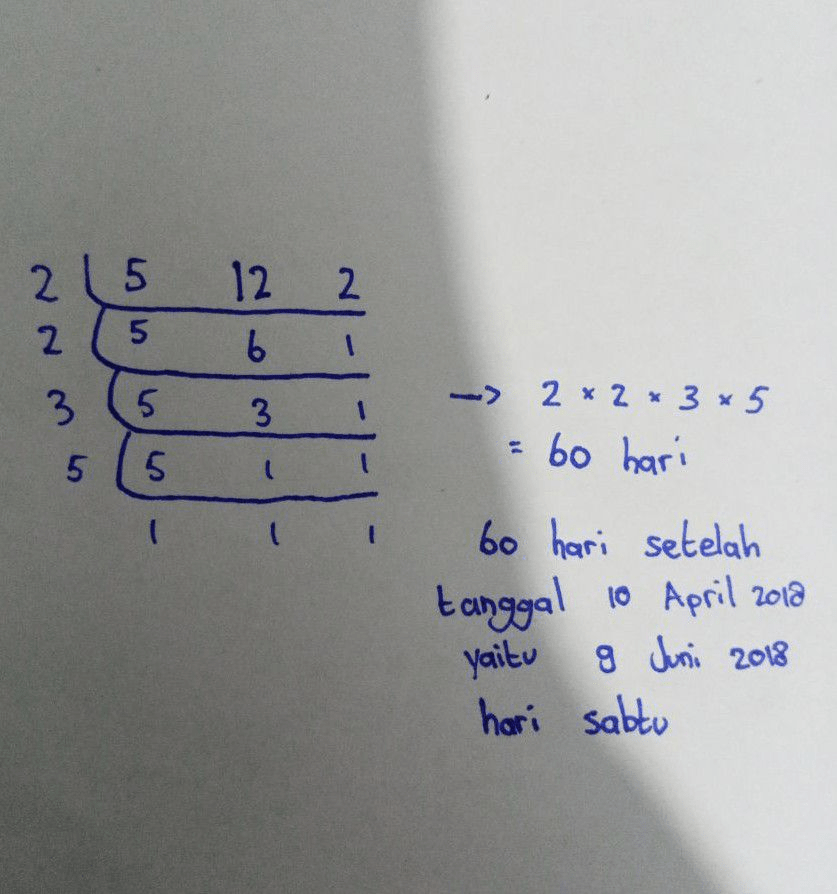 2 5 12 2
2 5 6 1
3 5 3 1
5 5 1 1
1 1 1
→ 2 × 2 × 3 × 5
= 60 hari
60 hari setelah
tanggal 10 April 2018
yaitu 9 Juni 2018
hari sabtu